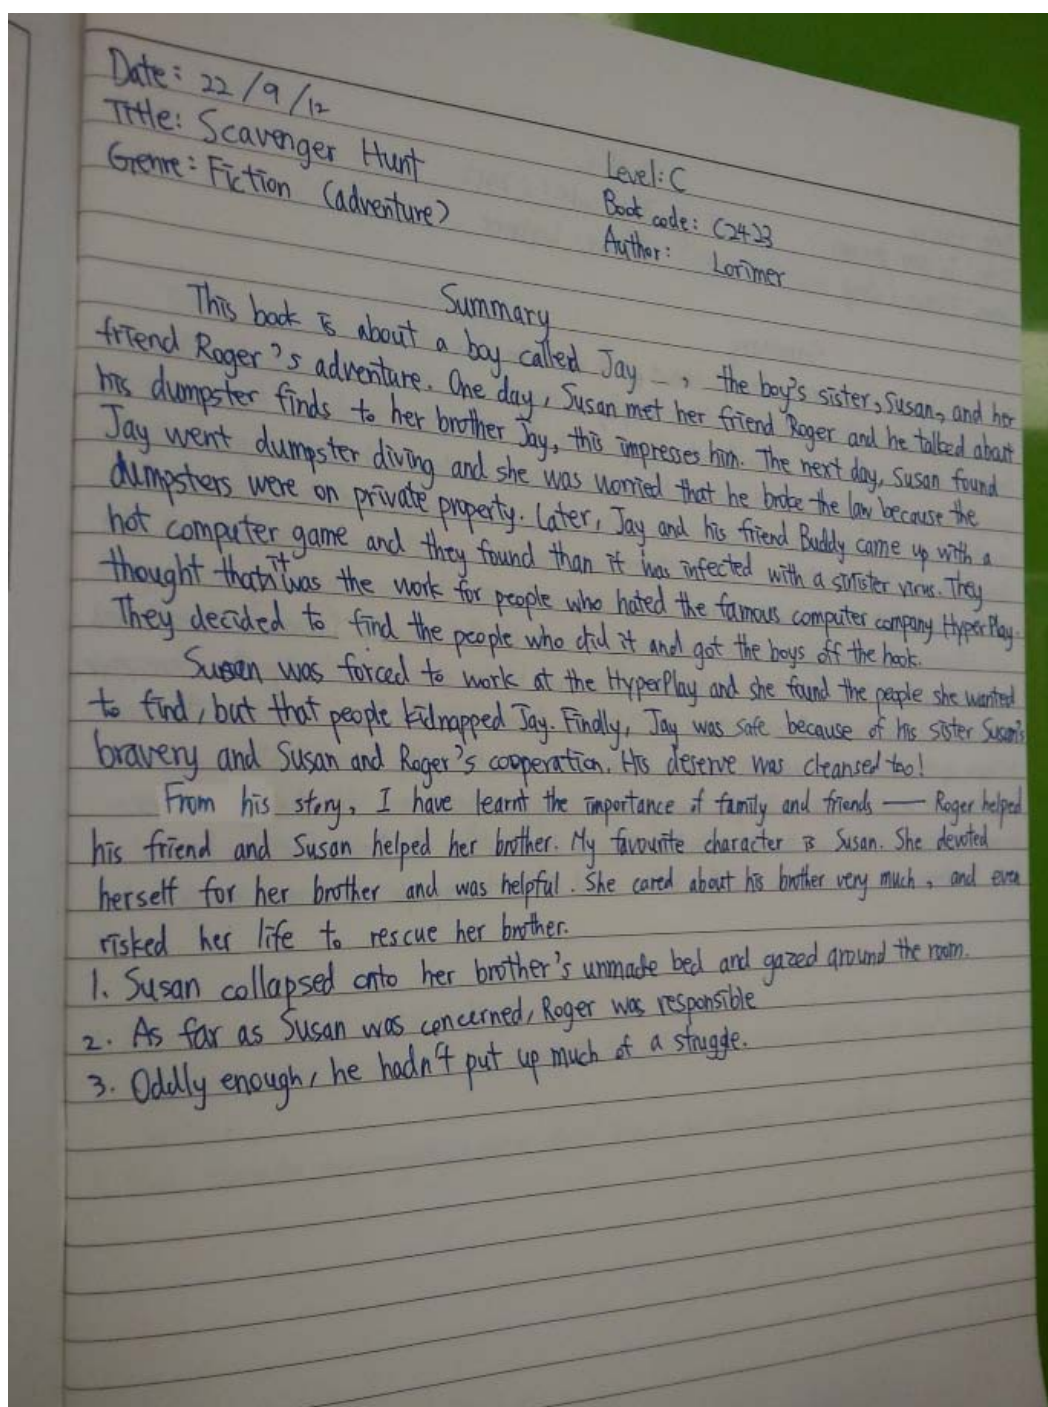 Date: 22/9/12
Title: Scavenger Hunt
Level: C
Genre: Fiction (adventure)
Book code: C2423
Author: Lorimer
Summary
This book is about a boy called Jay - , the boy's sister, Susan, and her
friend Roger's adventure. One day, Susan met her friend Roger and he talked about
his dumpster finds to her brother Jay, this impresses him. The next day, Susan found
Jay went dumpster diving and she was worried that he broke the law because the
dumpsters were on private property. Later, Jay and his friend Buddy came up with a
hot computer game and they found than it was infected with a sinister virus. They
thought that it was the work for people who hated the famous computer company HyperPlay.
They decided to find the people who did it and got the boys off the hook.
Susan was forced to work at the HyperPlay and she found the people she wanted
to find, but that people kidnapped Jay. Finally, Jay was safe because of his sister Susan's
bravery and Susan and Roger's cooperation. His deserve was cleansed too!
From his story, I have learnt the importance of family and friends — Roger helped
his friend and Susan helped her brother. My favourite character is Susan. She devoted
herself for her brother and was helpful. She cared about his brother very much, and even
risked her life to rescue her brother.
1. Susan collapsed onto her brother's unmade bed and gazed around the room.
2. As far as Susan was concerned, Roger was responsible
3. Oddly enough, he hadn't put up much of a struggle.